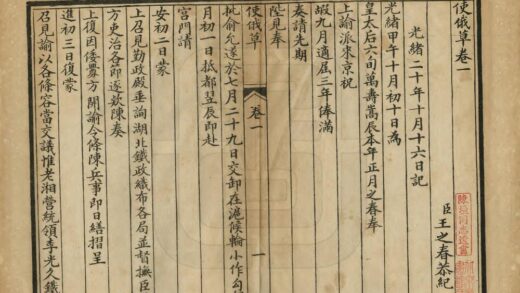 使俄草卷一
臣王之春恭紀
光緒二十年十月十六日記
光緒甲午十月初十日為
皇太后六旬萬壽嵩辰本年正月之春奉
上諭派來京祝
嘏九月適屆三年俸滿
奏請先期
陛見奉
批俞允遂於七月二十九日交卸在滬候輪小作勾
卷一
一
月初一抵都翌辰即赴
宮門請
安初二日蒙
上召見勤政殿垂詢湖北鐵政織布各局並督撫臣
方吏治各即逐欵陳奏
上復因倭釁方開諭令條陳兵事即日繕摺呈
進初三日復蒙
召見諭以各條容當交議惟老湘營統領李光久鐵
陳垣同志遺書